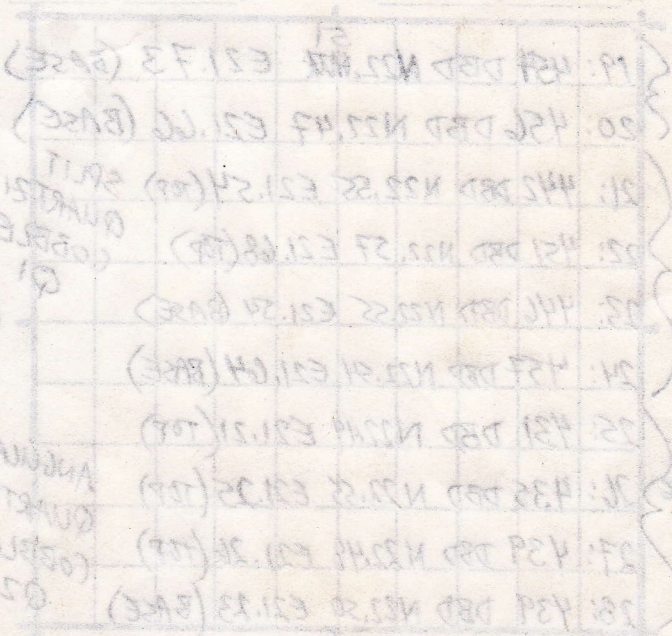 51
19: 459 DBD N22. E21.73 (BASE)
20: 456 DBD N22.47 E21.66 (BASE)
21: 442 DBD N22.55 E21.54 (TOP)
22: 451 DBD N22.57 E21.68 (TOP)
23: 446 DBD N22.55 E21.54 (BASE)
24: 457 DBD N22.91 E21.64 (BASE)
25: 431 DBD N22.49 E21.21 (TOP)
26: 435 DBD N22.55 E21.25 (TOP)
27: 439 DBD N22.49 E21.26 (TOP)
28: 439 DBD N22.50 E21.23 (BASE)
SPLIT
COBBLE
Q1
COBBLE
Q2